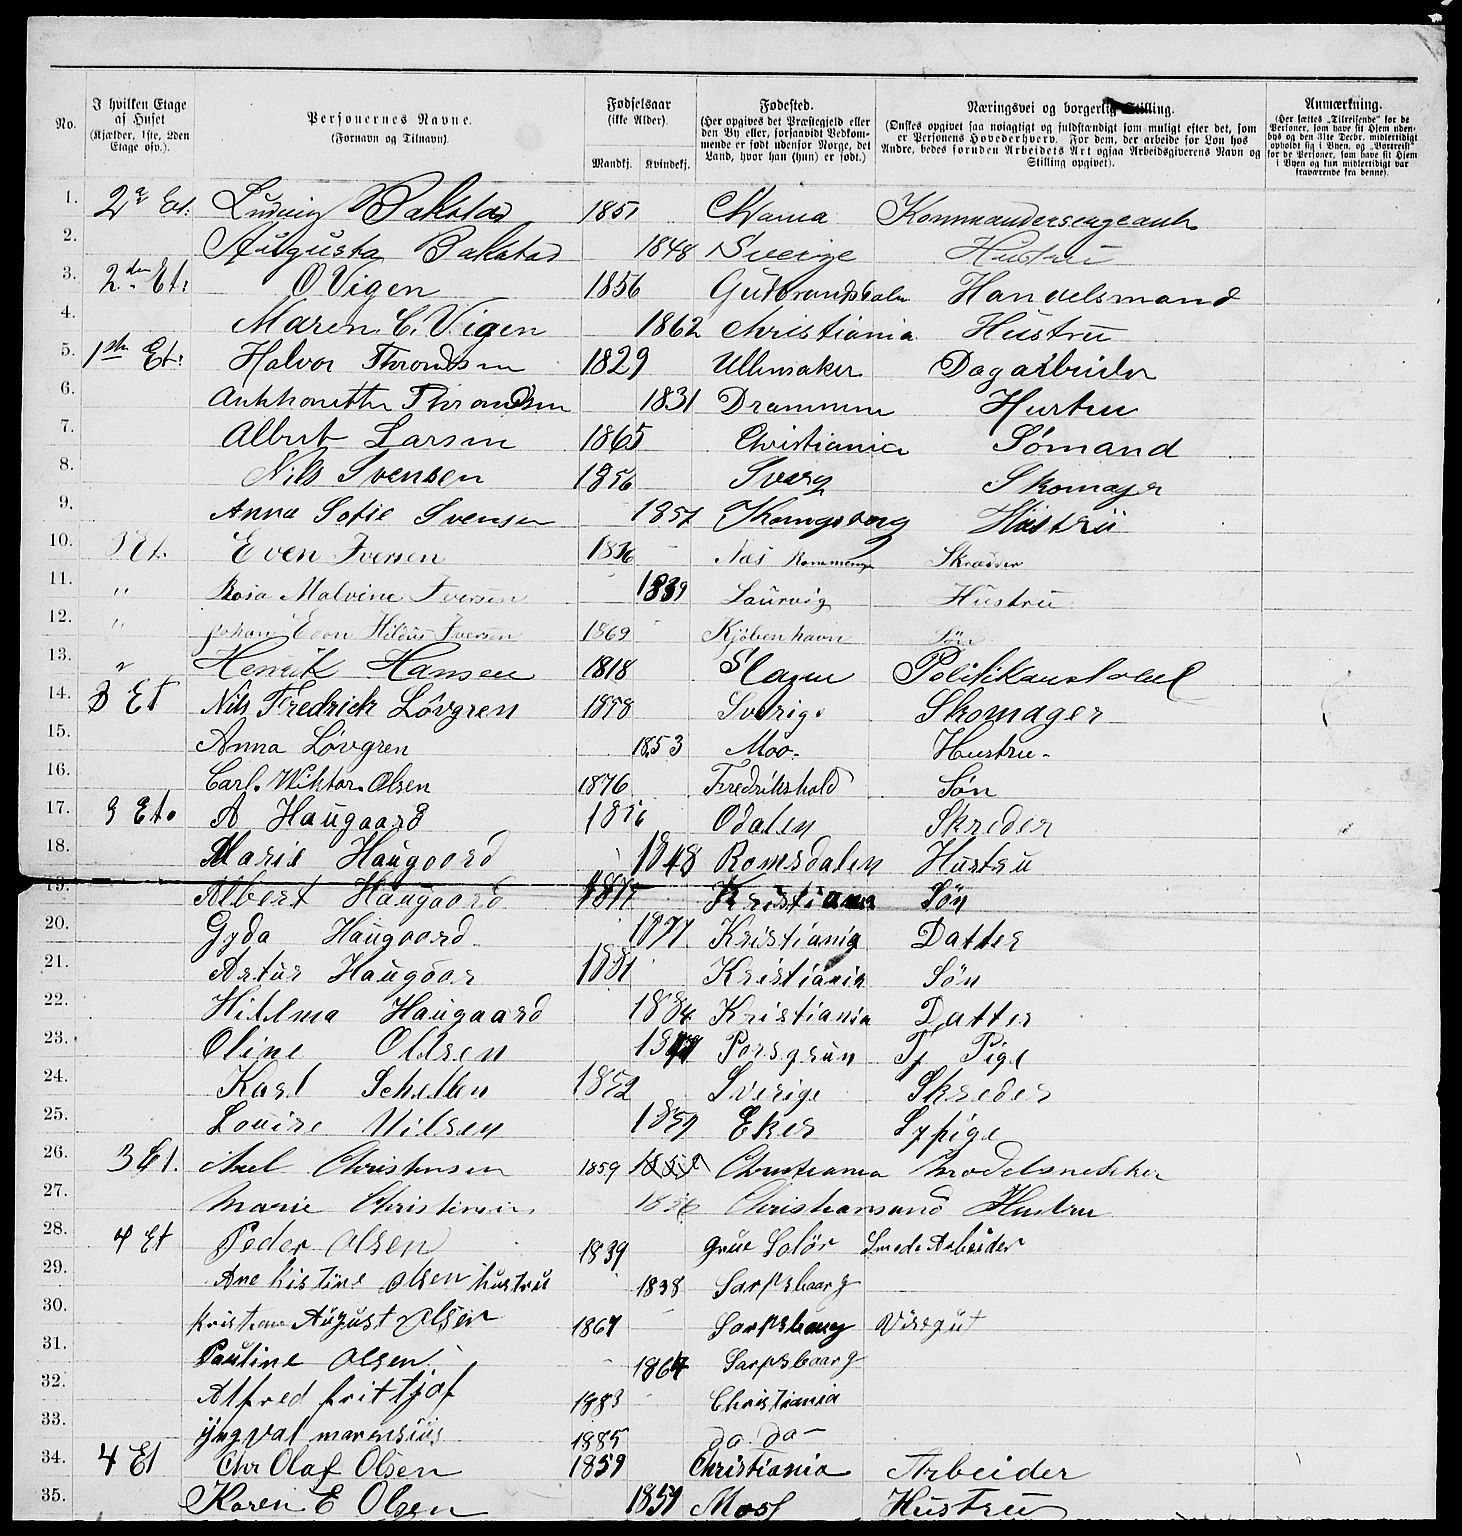 No. | I hvilken Etage af Huset (Kjælder, 1ste, 2den Etage osv.). | Personernes Navne. (Fornavn og Tilnavn). | Fødselsaar (ikke Alder). Mandkj. Kvindekj. | Fødested. (Her opgives det Præstegjeld eller den By eller, forsaavidt Vedkommende er født udenfor Norge, det Land, hvor han (hun) er født.) | Næringsvei og borgerlig Stilling. (Ønskes opgivet saa nøiagtigt og fuldstændigt som muligt efter det, som er Personens Hovederhverv. For dem, der arbeide for Løn hos Andre, bedes foruden Arbeidets Art ogsaa Arbeidsgiverens Navn og Stilling opgivet). | Anmærkning. (Her sættes „Tilreisende" for de Personer, som have sit Hjem udenbys og den 31te Decbr. midlertidigt opholdt sig i Byen, og „Bortreist" for de Personer, som have sit Hjem i Byen og kun midlertidigt var fraværende fra denne).
1. 2 Et. Ludvig Bakstad 1851 Kommandersergeant
2. Augusta Bakstad 1848 Sverige Hustru
3. 2den Et. O Vigen 1856 Gudbrandsdalen Handelsmand
4. Maren C. Vigen 1862 Christiania Hustru
5. 1ste Et. Halvor Throndsen 1829 Ullensaker Dagarbeider
6. Anthonette Throndsen 1831 Drammen Hustru
7. Albert Larsen 1865 Christiania Sømand
8. Nils Svensen 1856 Sverg Skomager
9. Anna Sofie Svensen 1857 Kongsberg Hustru
10. Et. Even Iversen 1836 Næs Romme Skræder
11. " Rosa Malvine Iversen 1839 Laurvig Hustru
12. " Johan Even Hildus Iversen 1869 Kjøbenhavn Søn
13. " Henrik Hansen 1818 Slagen Politikonstabel
14. 3 Et Nils Fredrick Løvgren 1858 Sverige Skomager
15. Anna Løvgren 1853 Moss. Hustru.
16. Carl. Wiktor. Olsen 1876 Fredrikshald Søn
17. 3 Et. A Haugaard 1856 Odalen Skreder
18. Marie Haugaard 1848 Romsdalen Hustru
19. Albert Haugaard Kristiania Søn
20. Gyda Haugaard 1877 Kristiania Datter
21. Artur Haugaar 1881 Kristiania Søn
22. Hildma Haugaard 1884 Kristiania Datter
23. Oline Oldsen Porsgrun Tj Pige
24. Karl Schellen 1852 Sverige Skreder
25. Louise Nilsen 1859 Eker Sypige
26. 3 Et. Axel Christensen 1859 Christiania Modelsnekker
27. Marie Christensen 1856 Christiansund Hustru
28. 4 Et Peder Olsen 1839 Grue Solør Smede Arbeider
29. Ane Kistine Olsen hustru 1838 Sarpsbaarg
30. Kristian August Olsen 1867 Sarpsbaarg Visegut
31. Pauline Olsen 1864 Sarpsbaarg
32. Alfred frittjof 1883 Christiania
33. yngval marensius 1885 do. do -
34. 4 Et Chr Olaf Olsen 1859 Christiania Arbeider
35. Karen E Olsen 1859 Moss Hustru